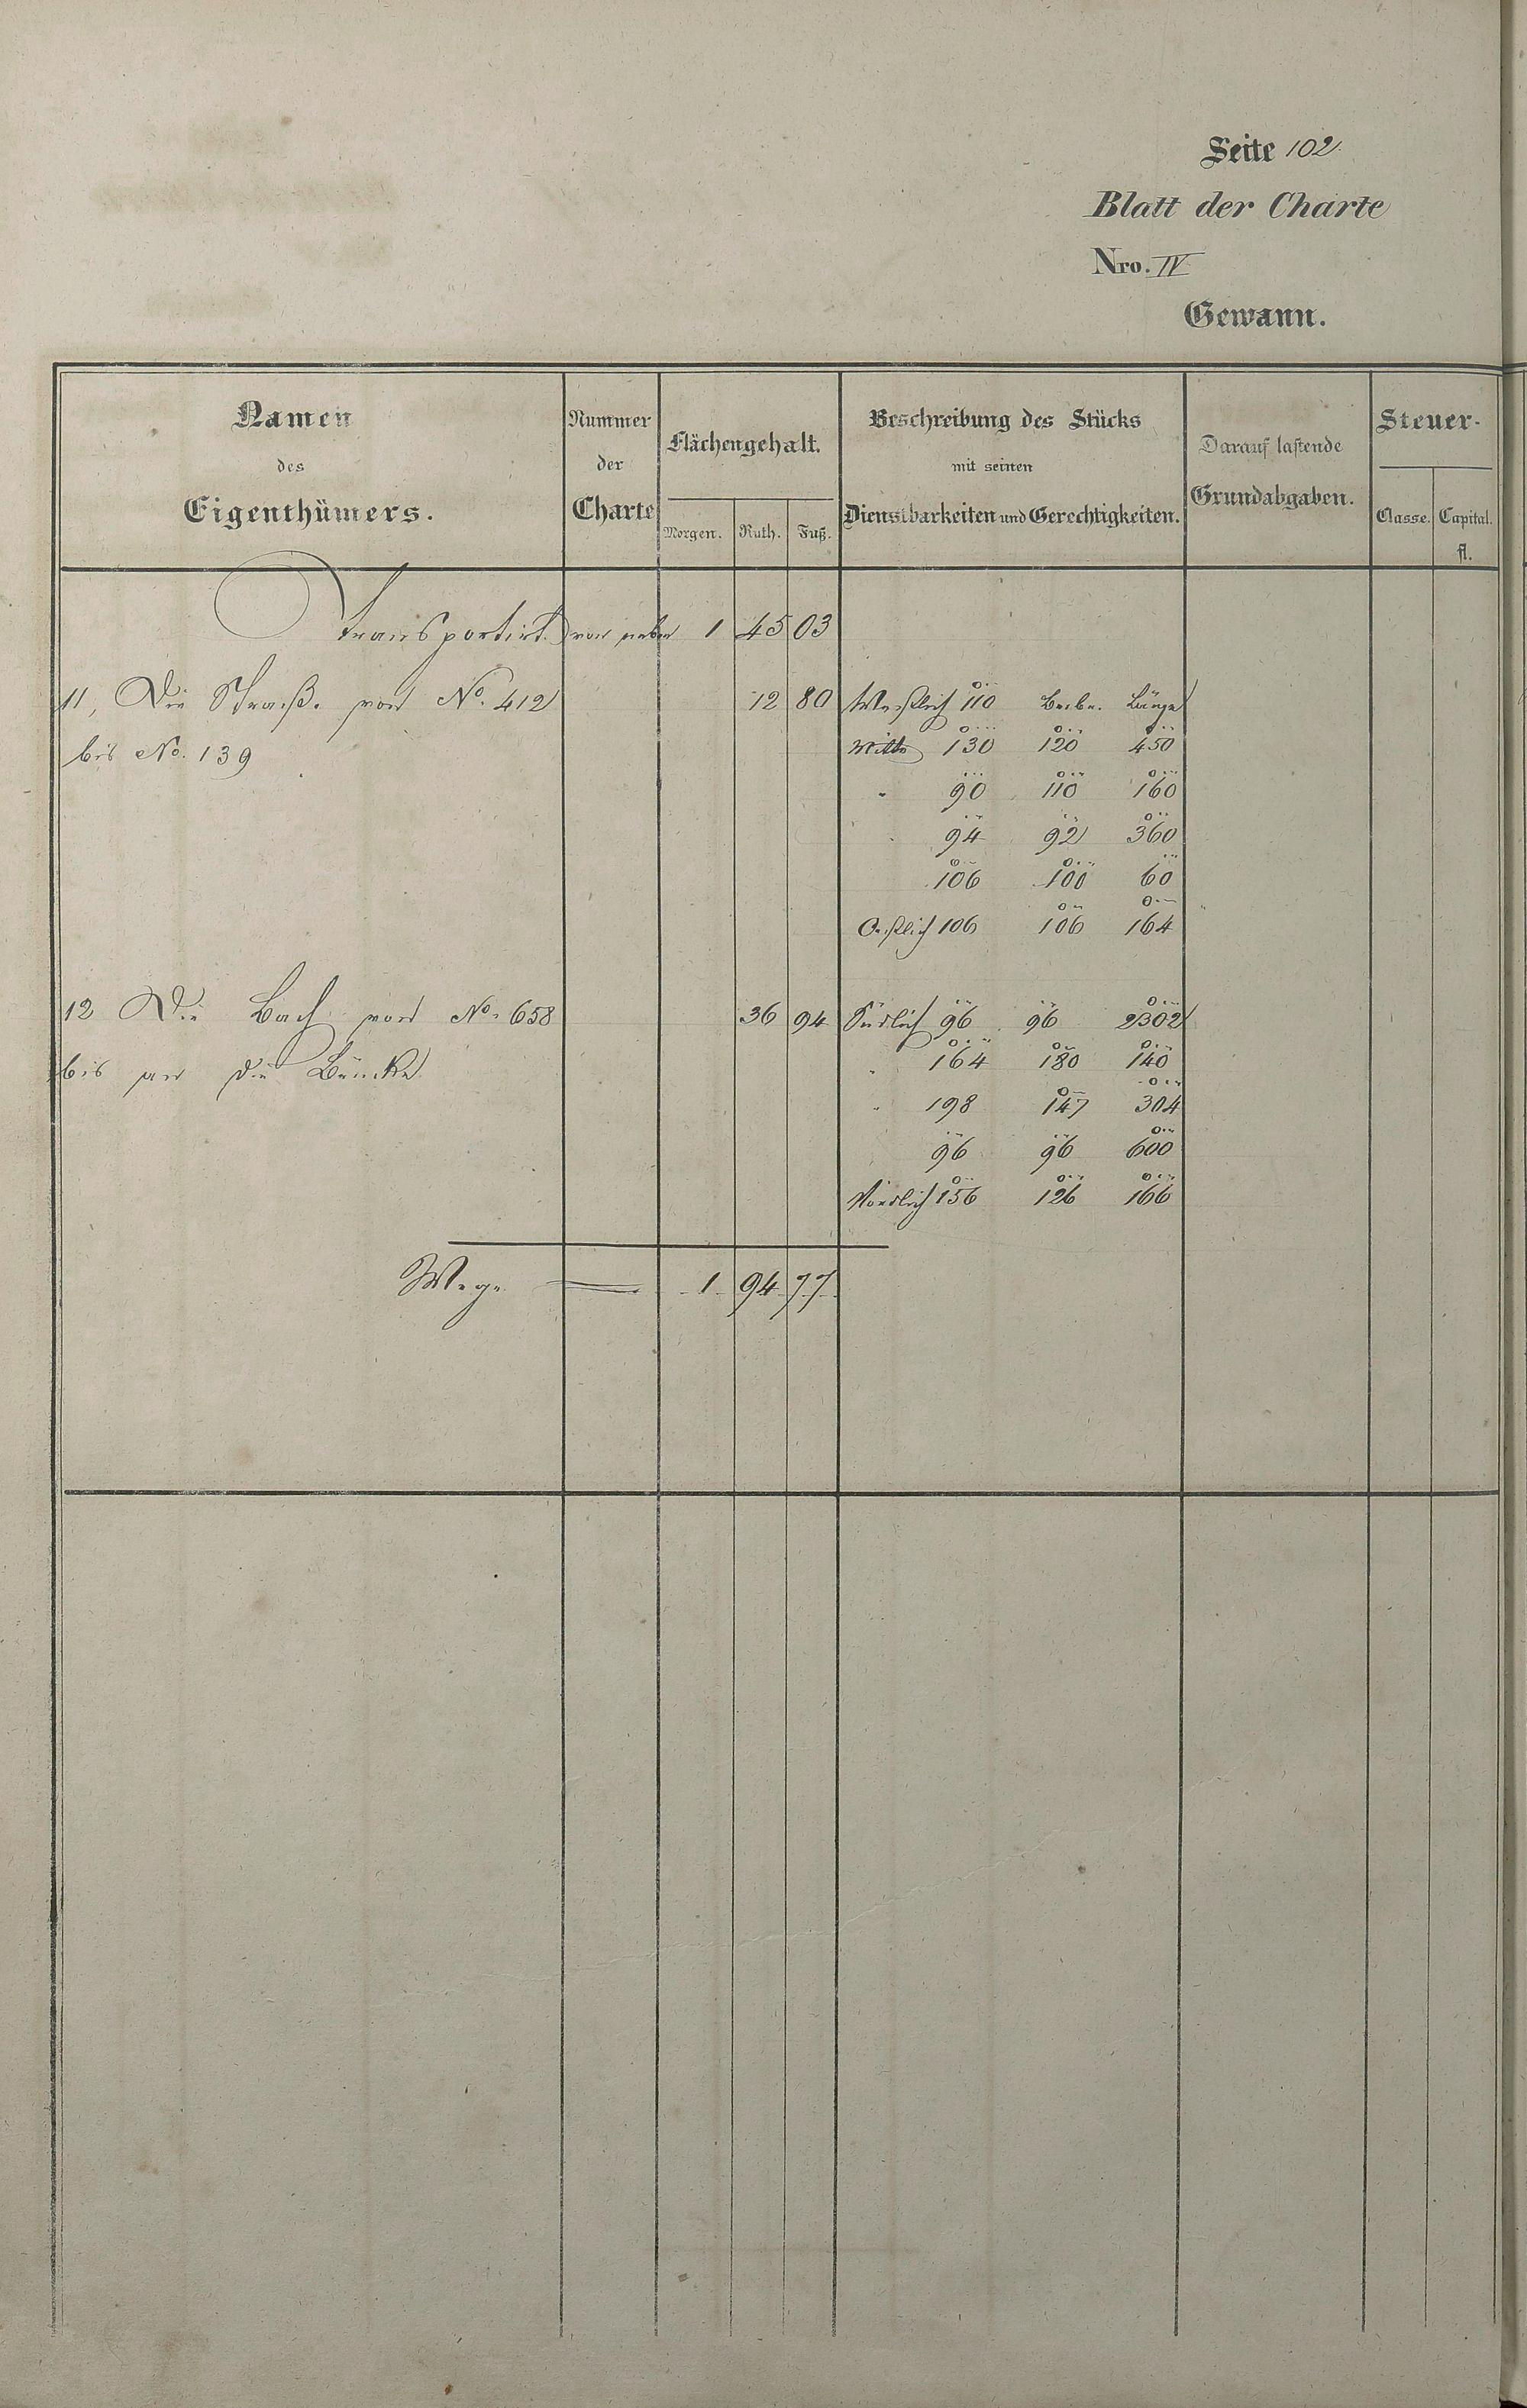 Seite 102
Blatt der Charte
Nro. IV
Gewann.
Namen des Eigenthümers.
Nummer der Charte
Flächengehalt.
Morgen. Ruth. Fuß.
Beschreibung des Stücks mit seinen Dienstbarkeiten und Gerechtigkeiten.
Darauf lastende Grundabgaben.
Steuer-
Classe. Capital. fl.
Transportirt von neben 1 45 03
11, Die Straße von No. 412 12 80 Westlich 110 Länge
bis No. 139 Mitte 130 120 450
" 90 110 160
94 92 360
106 100 60
Oestlich 106 106 164
12 Die Bach von No. 658 36 94 Südlich 96 96 2302
bis an die Brücke " 164 180 140
" 198 147 304
96 96 600
Nördlich 156 126 166
Wege 1 94 77